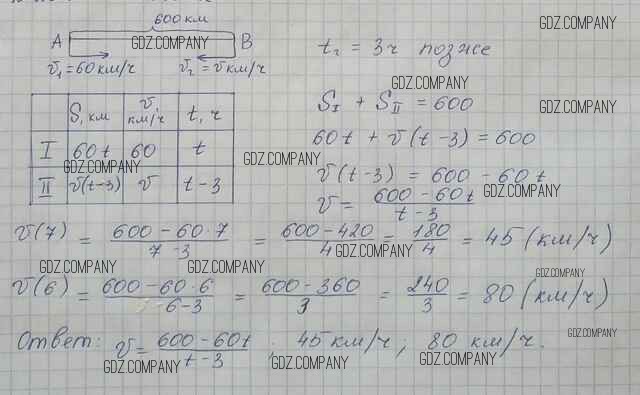 600 км
GDZ.COMPANY
A GDZ.COMPANY B
t₂ = 3ч позже
v₁ = 60 км/ч v₂ = v км/ч
GDZ.COMPANY
S, км v, км/ч t, ч
S_I + S_II = 600
GDZ.COMPANY
I 60t 60 t
60t + v(t-3) = 600
GDZ.COMPANY
GDZ.COMPANY
II v(t-3) v t-3
v(t-3) = 600 - 60t
v = (600 - 60t)/(t-3)
GDZ.COMPANY
v(7) = (600 - 60·7)/(7-3) = (600-420)/4 = 180/4 = 45 (км/ч)
GDZ.COMPANY
GDZ.COMPANY GDZ.COMPANY GDZ.COMPANY
v(6) = (600 - 60·6)/(6-3) = (600-360)/3 = 240/3 = 80 (км/ч)
Ответ: v = (600 - 60t)/(t-3); 45 км/ч; 80 км/ч.
GDZ.COMPANY
GDZ.COMPANY GDZ.COMPANY GDZ.COMPANY